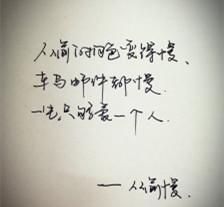 从前的日色变得慢、
车马邮件都慢.
一生只够爱一个人.
——从前慢.